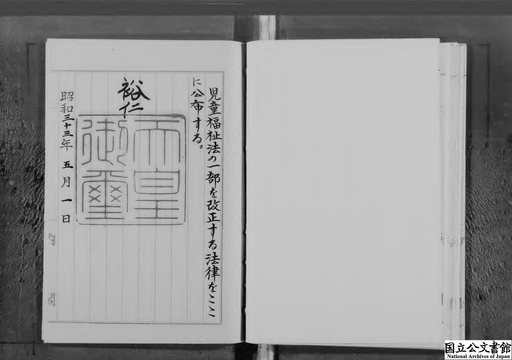 児童福祉法の一部を改正する法律をここ
に公布する。
裕仁
天皇
御璽
昭和三十三年五月一日
国立公文書館
National Archives of Japan